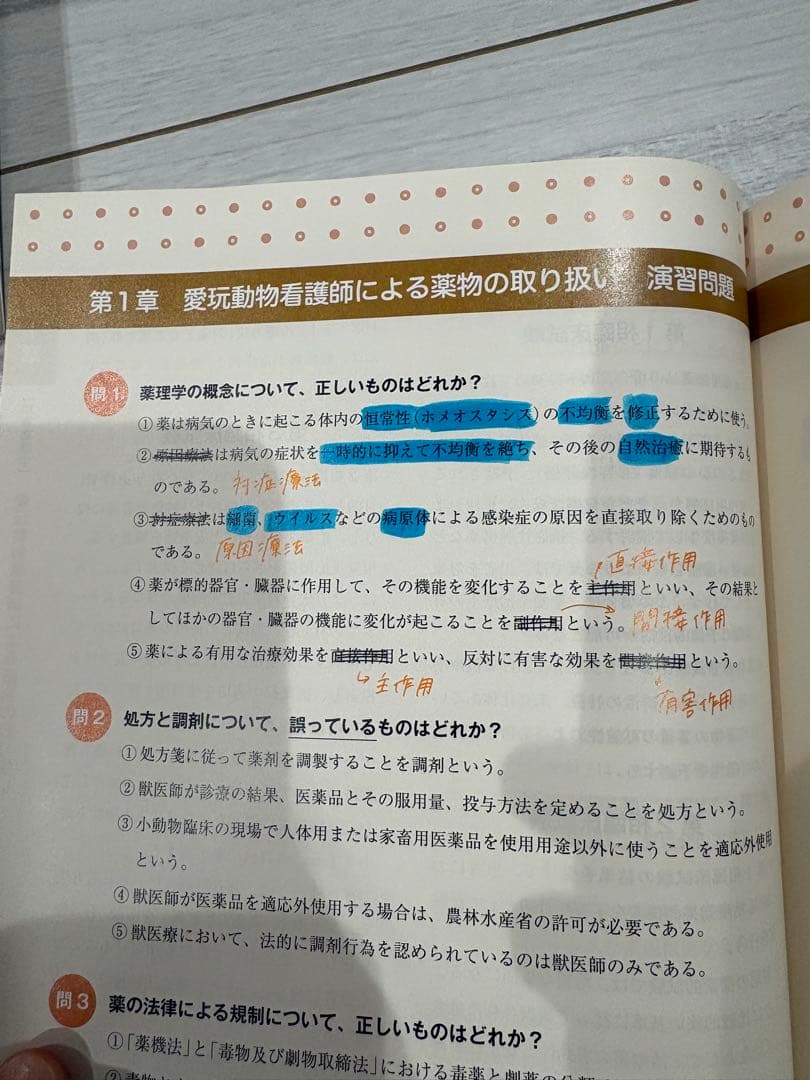 第1章 愛玩動物看護師による薬物の取り扱い 演習問題
問1 薬理学の概念について、正しいものはどれか？
①薬は病気のときに起こる体内の恒常性(ホメオスタシス)の不均衡を修正するために使う。
②原因療法は病気の症状を一時的に抑えて不均衡を絶ち、その後の自然治癒に期待するも
のである。対症療法
③対症療法は細菌、ウイルスなどの病原体による感染症の原因を直接取り除くためのもの
である。原因療法
直接作用
④薬が標的器官・臓器に作用して、その機能を変化することを主作用といい、その結果と
してほかの器官・臓器の機能に変化が起こることを副作用という。間接作用
⑤薬による有用な治療効果を直接作用といい、反対に有害な効果を間接作用という。
↳主作用 有害作用
問2 処方と調剤について、誤っているものはどれか？
①処方箋に従って薬剤を調製することを調剤という。
②獣医師が診療の結果、医薬品とその服用量、投与方法を定めることを処方という。
③小動物臨床の現場で人体用または家畜用医薬品を使用用途以外に使うことを適応外使用
という。
④獣医師が医薬品を適応外使用する場合は、農林水産省の許可が必要である。
⑤獣医療において、法的に調剤行為を認められているのは獣医師のみである。
問3 薬の法律による規制について、正しいものはどれか？
①「薬機法」と「毒物及び劇物取締法」における毒薬と劇薬の分類